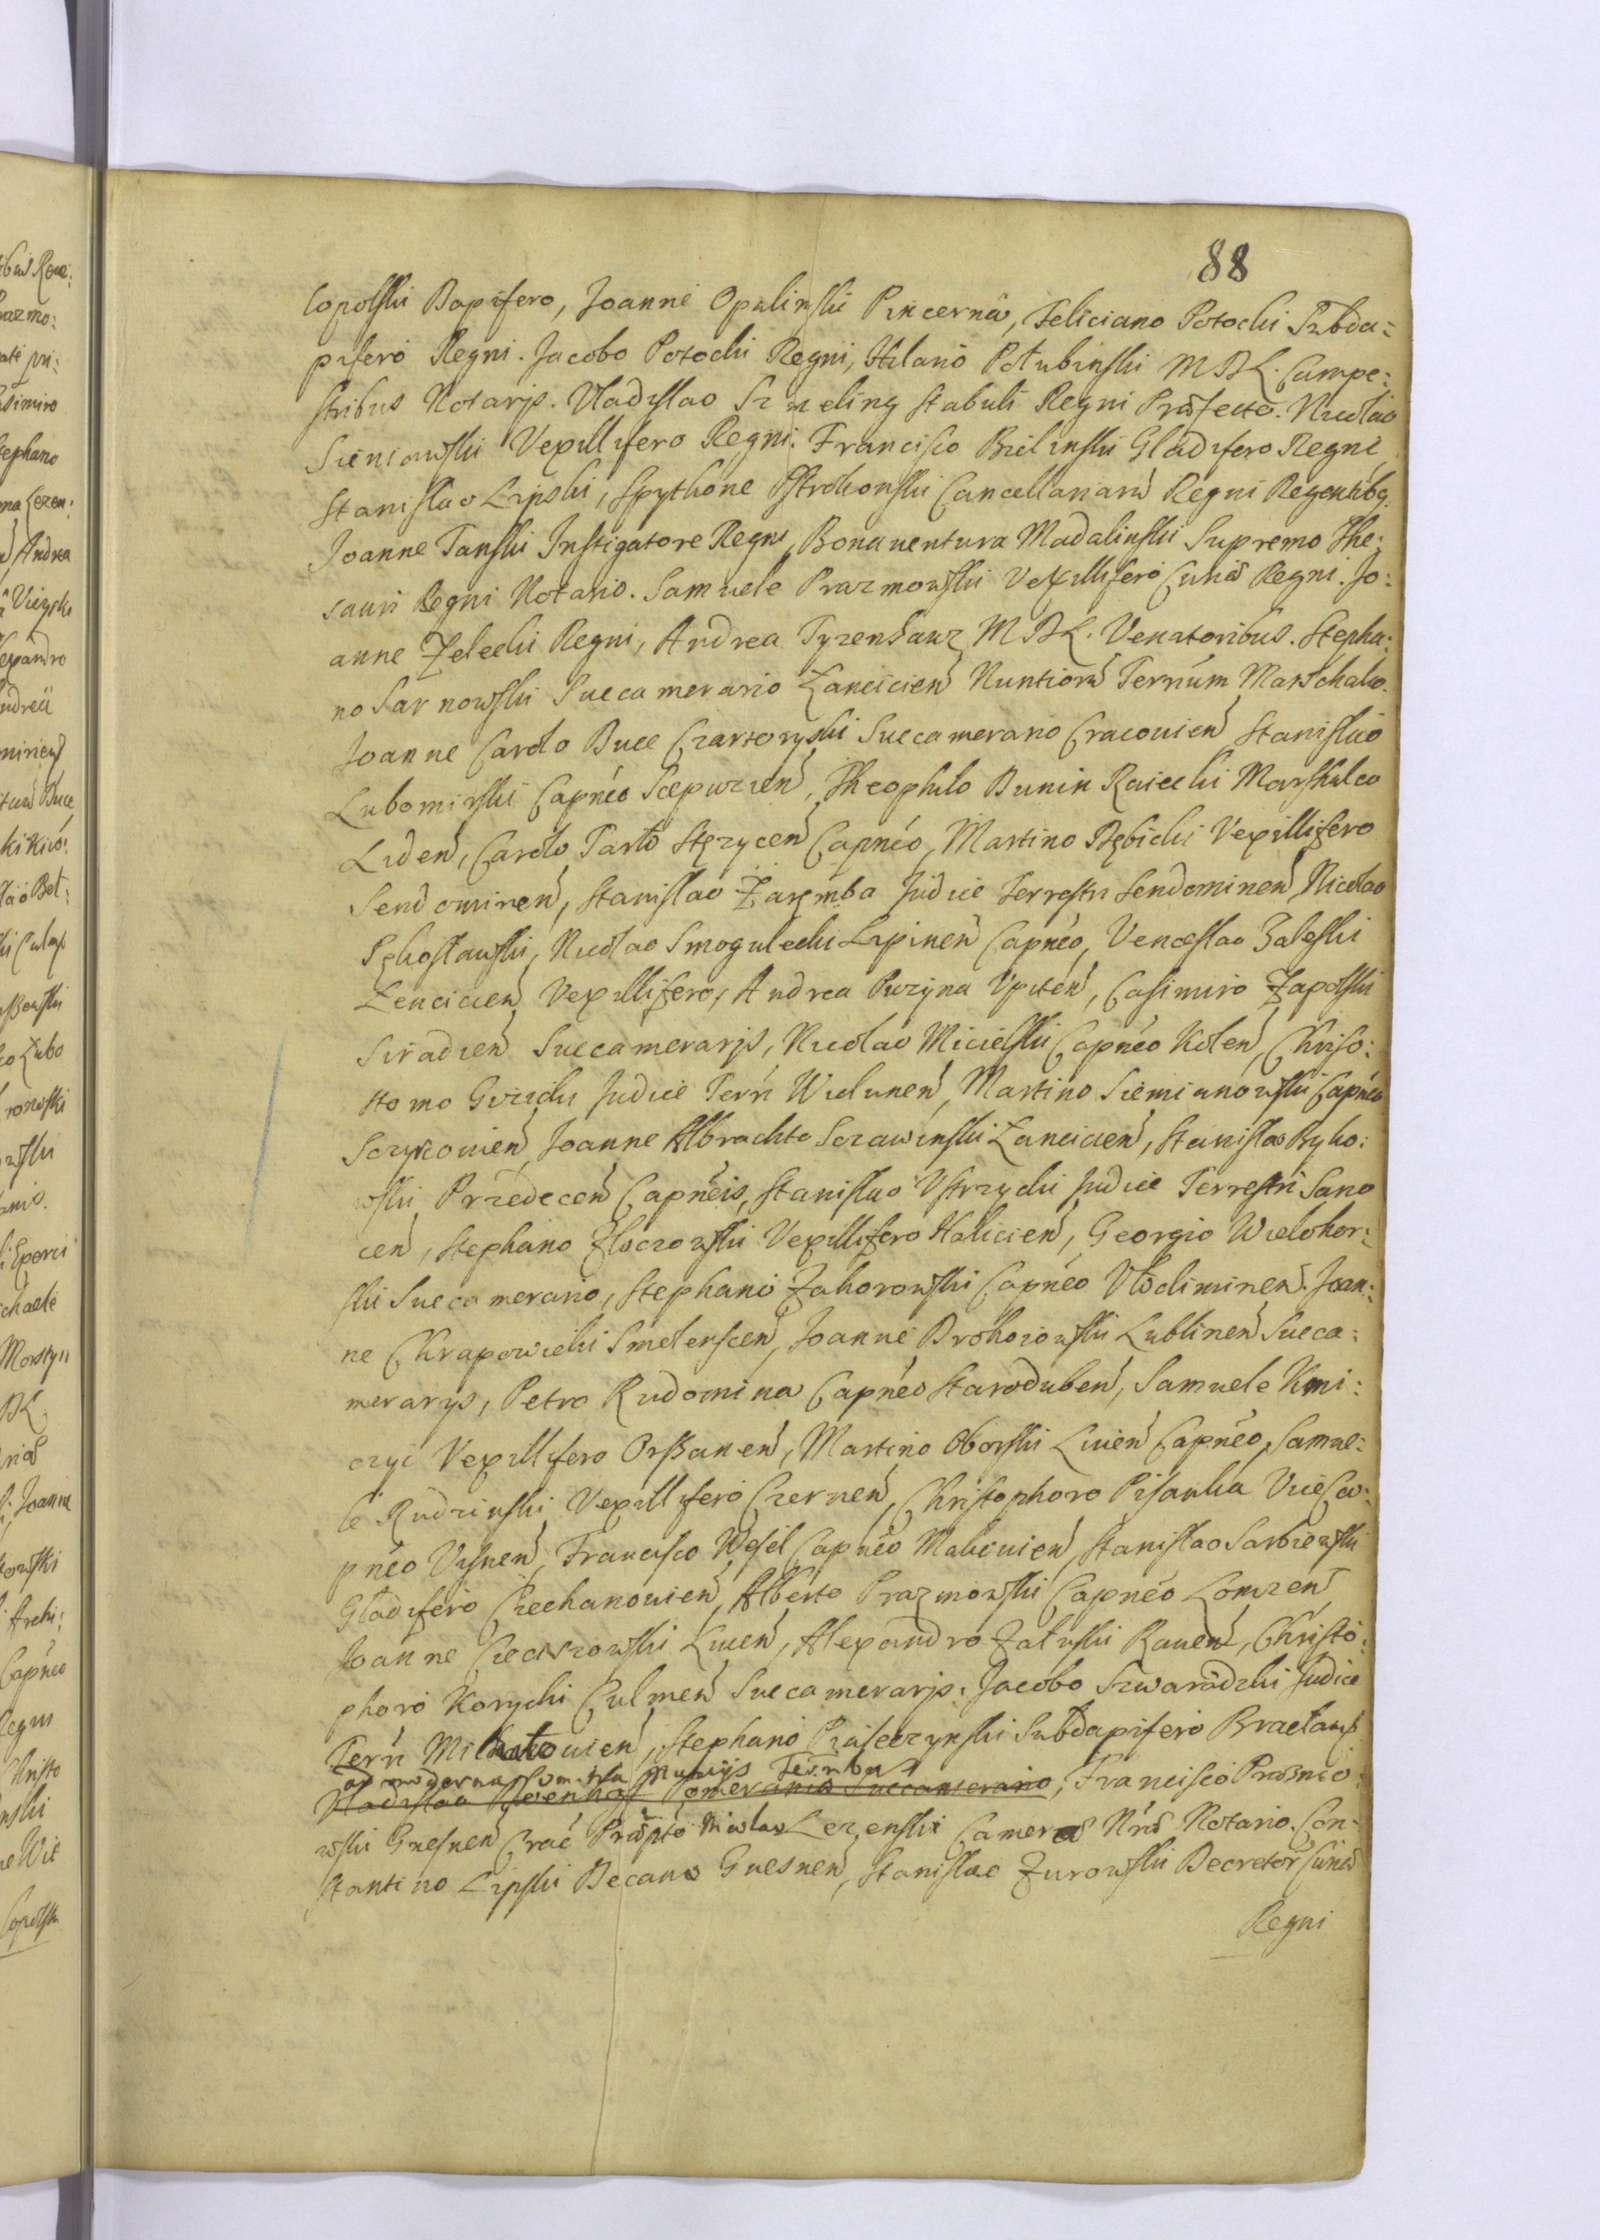 88
lopolski Dapifero, Joanne Opalinski Pincerna, Feliciano Potocki Subda=
pifero Regni. Jacobo Potocki Regni, Hilario Połubinski M D L. Campe:
stribus Notarijs. Vladislao Szmeling Stabuli Regni Præfecto. Nicolao
Sieniawski Vexillifero Regni. Francisco Bielinski Gladifero Regni
Stanislao Lipski, Spythone Pstrokonski Cancellariarũ Regni Regentibq.
Joanne Tanski Instigatore Regni, Bonaventura Madalinski Supremo The:
sauri Regni Notario. Samuele Prazmowski Vexillifero Curiæ Regni. Jo:
anne Zelecki Regni, Andrea Tyzenhauz M D L. Venatoribus. Stepha:
no Sarnowski Succamerario Lancicień Nuntiorũ Ternúm Marschalco.
Joanne Carolo Duce Czartoryski Succamerario Cracovień Stanislao
Lubomirski Capnéo Scepuzień, Theophilo Dunin Raiecki Marshalco
Lideń, Carolo Tarło Stęzyceń Capnéo, Martino Dębicki Vexillifero
Sendomireń, Stanislao Zaręmba Judice Terrestri Sendomireń Nicolao
Pękosławski, Nicolao Smogulecki Lipineń Capnéo, Venceslao Zaleski
Lencicień Vexillifero, Andrea Puzyna Upiteń, Casimiro Zapolski
Siradień Succamerarjs, Nicolao Micielski Capnéo Koleń, Chriso:
stomo Gizicki Judice Terri Wieluneń, Martino Siemianowski Capnéo
Szyrzovień, Joanne Albrachto Szczawinski Lancicień, Stanislao Byko:
wski Przedeceń Capnéis, Stanislao Ustrzycki Judice Terrestri Sano
ceń, Stephano Zloczowski Vexillifero Halicień, Georgio Wielohor:
ski Succamerario, Stephano Zahorowski Capnéo Vlodimireń. Joan:
ne Chrapowicki Smolensceń, Joanne Drohoiowski Lublineń Succa:
merarys, Petro Rudomina Capnéo Starodubeń, Samuele Kmi:
czyc Vexillifero Orszaneń, Martino Oborski Livień Capnéo, Samue:
le Rudzinski Vexillifero Czerneń, Christophoro Pisanka Vice Ca:
pnéo Visneń, Francisco Wesel Capnéo Makovień, Stanislao Sarbiewski
Gladifero Ciechanovień, Alberto Prazmowski Capnéo Lomzeń
Joanne Cieciszowski Livień, Alexandro Załuski Raveń, Christo:
phoro Korycki Culmeń Succamerarjs. Jacobo Szwaradzki Judice
Terri Michałovień, Stephano Piaseczynski Subdapifero Bracław
Terrarum
Vladislao Pomeraniæ Succamerario, Francisco Prazmo:
wski Gnesneń Crać Præpto Nicolao Lezenski Cameræ Nræ Notario. Con:
stantino Lipski Decano Gnesneń, Stanislao Zurowski Decretor Curiæ
Regni